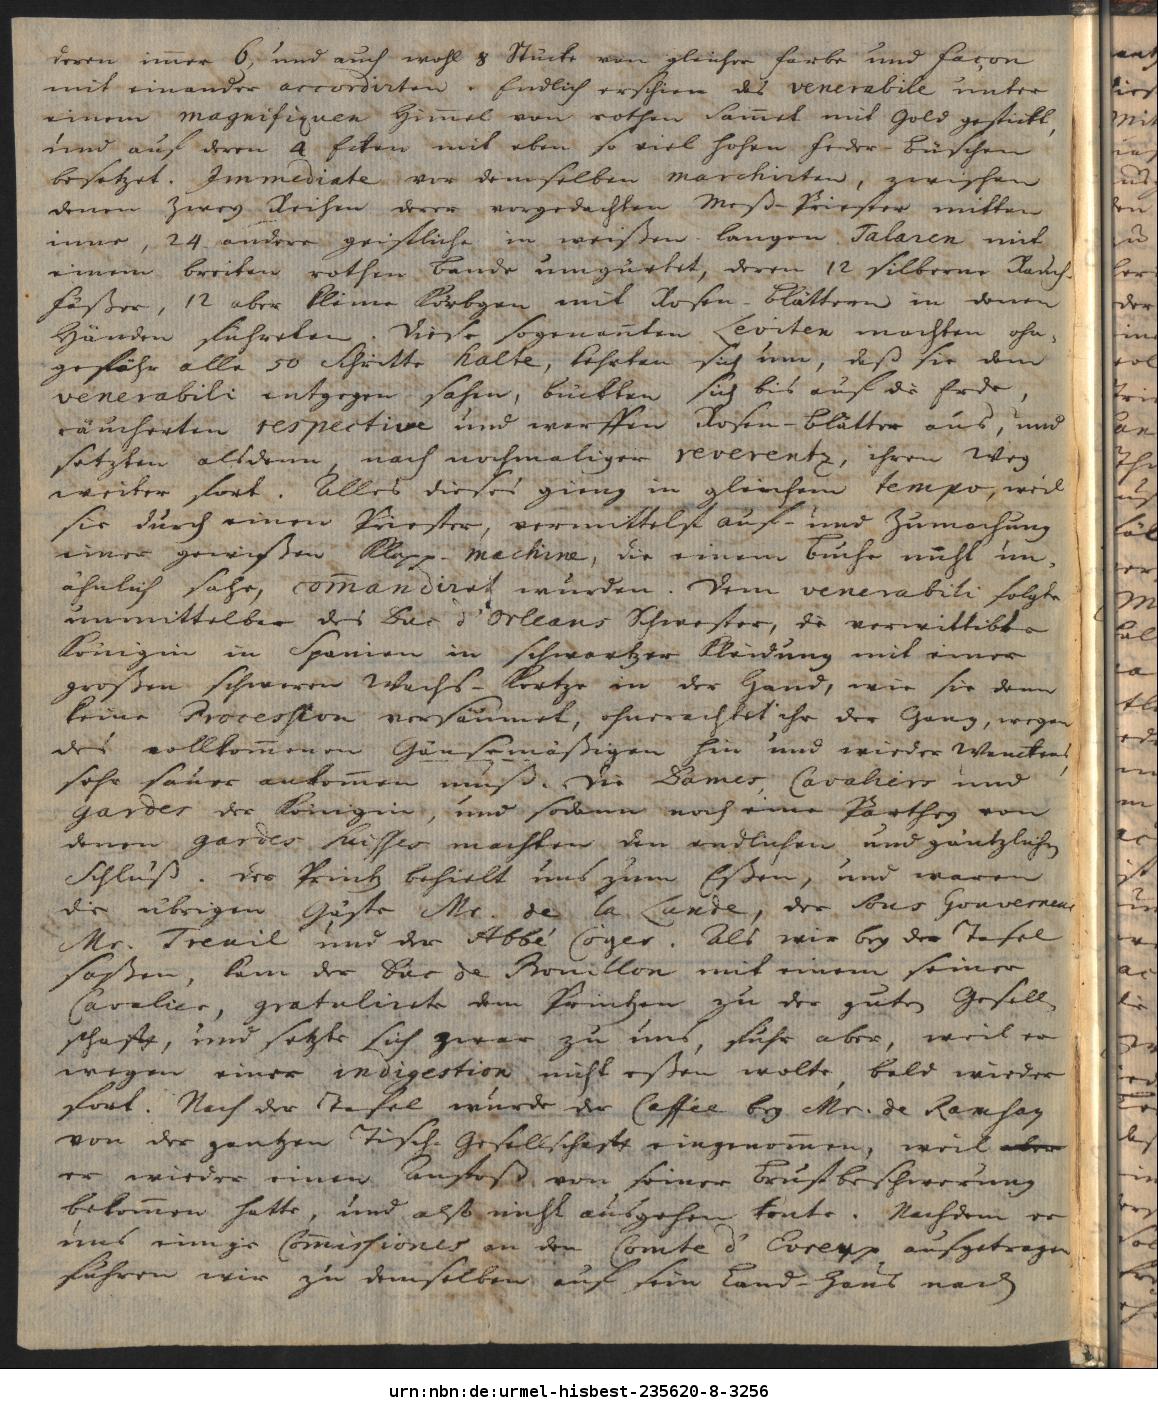 deren im̄er 6, und auch wohl 8 Stücke von gleicher farbe und façon
mit einander accordirten. Endlich erschien das venerabile unter
einem magnifiquen Him̄el von rothen Sam̄et mit Gold gestickt,
und auf deren 4 Ecken mit eben so viel hohen Feder-Büschen
besetzet. Immediate vor demselben marchirten, zwischen
denen zwey Reihen derer vorgedachten Meß-Priester mitten
inne, 24 andere geistliche in weißen langen Talaren mit
einem breiten rothen Bande umgürtet, deren 12 silberne Rauch-
fäßer, 12 aber kleine Körbgen mit Rosen-Blättern in denen
Händen führeten. Diese sogenan̄ten Leviten machten ohn-
gefähr alle 50 Schritte halte, kehrten sich um, daß sie dem
venerabili entgegen sahen, bückten sich bis auf die Erde,
räucherten respective und warffen Rosen-Blätter aus, und
setzten alsdenn, nach nochmaliger reverentz, ihren Weg
weiter fort. Alles dieses gieng in gleichem tempo, weil
sie durch einen Priester, vermittelst auf- und Zumachung
einer gewißen Klapp-machine, die einem Buche nicht un-
ähnlich sahe, com̄andiret wurden. Dem venerabili folgte
unmittelbar des Duc d'Orleans Schwester, die verwittibte
Königin in Spanien in schwartzer Kleidung mit einer
großen schweren Wachs-Kertze in der Hand, wie sie denn
keine Procession versäumet, ohnerachtet ihr der Gang, wegen
des vollkom̄enen Gänsemäßigen hin und wieder Wanckens,
sehr sauer ankom̄en muß. Die Dames, Cavaliers und
gardes der Königin, und sodann noch eine Parthey von
denen gardes suisses machten den endlichen und gäntzlichen
Schluß. Der Printz behielt uns zum Eßen, und waren
die übrigen Gäste Mr. de la Lande, der Sous Gouverneur
Mr. Treuil und der Abbé Coger. Als wir bey der Tafel
saßen, kam der Duc de Bouillon mit einem seiner
Cavalier, gratulirte dem Printzen zu der guten Gesell-
schafft, und setzte sich zwar zu uns, fuhr aber, weil er
wegen einer indigestion nicht eßen wolte, bald wieder
fort. Nach der Tafel wurde der Caffée bey Mr. de Ramsay
von der gantzen Tisch-Gesellschafft eingenom̄en, weil aber
er wieder einen Anstoß von seiner Brustbeschwerung
bekom̄en hatte, und alß nicht ausgehen konte. Nachdem er
uns einige Com̄issiones an den Comte d'Evreux aufgetragen
fuhren wir zu demselben auf sein Land-Haus nach
urn:nbn:de:urmel-hisbest-235620-8-3256